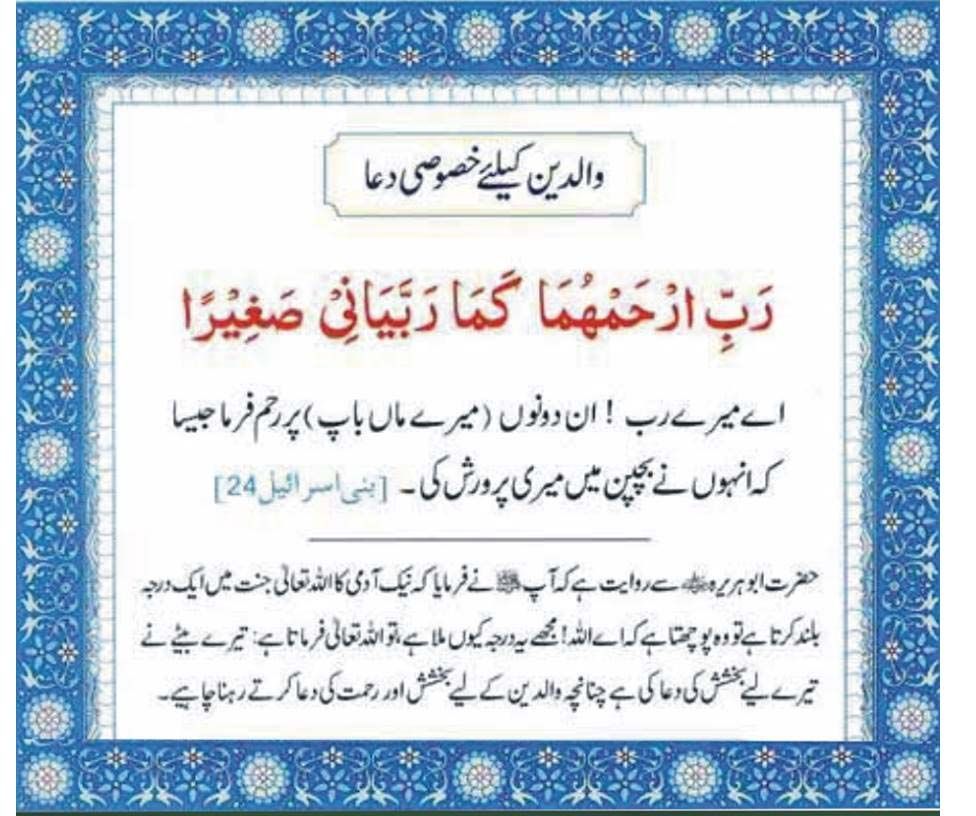 والدین کیلئے خصوصی دعا
رَبِّ ارْحَمْهُمَا كَمَا رَبَّيَانِيْ صَغِيْرًا
اے میرے رب ! ان دونوں (میرے ماں باپ) پر رحم فرما جیسا
کہ انہوں نے بچپن میں میری پرورش کی۔ [بنی اسرائیل 24]
حضرت ابوہریرہ رضی اللہ عنہ سے روایت ہے کہ آپ ﷺ نے فرمایا کہ نیک آدمی کا اللہ تعالیٰ جنت میں ایک درجہ
بلند کرتا ہے تو وہ پوچھتا ہے کہ اے اللہ! مجھے یہ درجہ کیوں ملا ہے، تو اللہ تعالیٰ فرماتا ہے: تیرے بیٹے نے
تیرے لیے بخشش کی دعا کی ہے چنانچہ والدین کے لیے بخشش اور رحمت کی دعا کرتے رہنا چاہیے۔